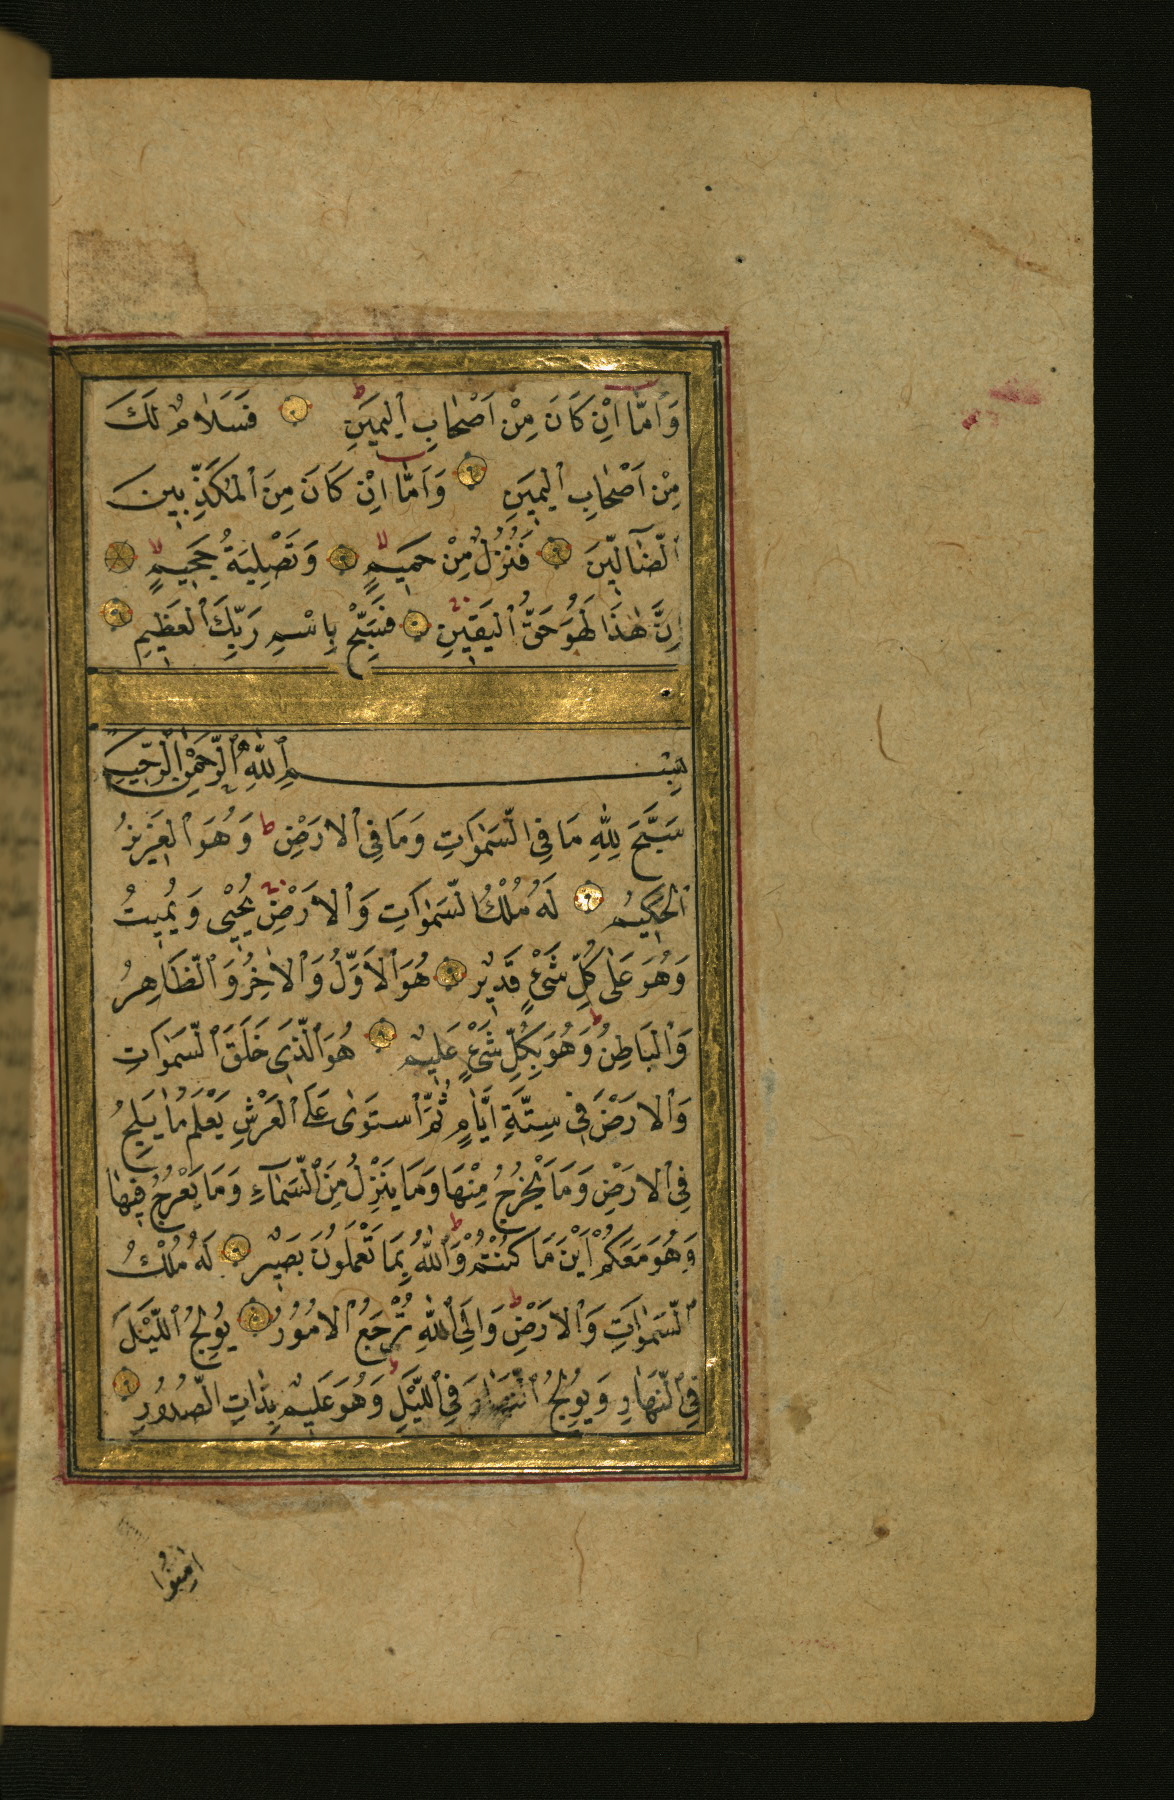 وَاَمَّا اِنْ كَانَ مِنْ اَصْحَابِ الْيَمَينِ ط فَسَلَامٌ لَكَ
مِنْ اَصْحَابِ الْيَمِينِ وَاَمَّا اِنْ كَانَ مِنَ الْمُكَذِّبِينَ
الضَّآلِّينَ فَنُزُلٌ مِنْ حَمَيمٍ لا وَتَصْلِيَةُ جَحِيمٍ لا
اِنَّ هٰذَا لَهُوَ حَقُّ الْيَقَينِ فَسَبِّحْ بِاسْمِ رَبِّكَ الْعَظِيمِ
بِسْمِ اللّٰهِ الرَّحْمٰنِ الرَّحِيمِ
سَبَّحَ لِلّٰهِ مَا فِي السَّمٰوَاتِ وَمَا فِي الْاَرْضِ ط وَهُوَ الْعَزِيزُ
الْحَكِيمُ لَهُ مُلْكُ السَّمٰوَاتِ وَالْاَرْضِ يُحْيٖى وَيُمِيتُ
وَهُوَ عَلٰى كُلِّ شَيْءٍ قَدِيرٌ هُوَ الْاَوَّلُ وَالْاٰخِرُ وَالظَّاهِرُ
وَالْبَاطِنُ ط وَهُوَ بِكُلِّ شَيْءٍ عَلِيمٌ هُوَ الَّذٖى خَلَقَ السَّمٰوَاتِ
وَالْاَرْضَ فِي سِتَّةِ اَيَّامٍ ثُمَّ اسْتَوٰى عَلَى الْعَرْشِ يَعْلَمُ مَا يَلِجُ
فِي الْاَرْضِ وَمَا يَخْرُجُ مِنْهَا وَمَا يَنْزِلُ مِنَ السَّمَآءِ وَمَا يَعْرُجُ فِيهَا
وَهُوَ مَعَكُمْ اَيْنَ مَا كُنْتُمْ ط وَاللّٰهُ بِمَا تَعْمَلُونَ بَصِيرٌ لَهُ مُلْكُ
السَّمٰوَاتِ وَالْاَرْضِ ط وَاِلَى اللّٰهِ تُرْجَعُ الْاُمُورُ يُولِجُ اللَّيْلَ
فِي النَّهَارِ وَيُولِجُ النَّهَارَ فِي اللَّيْلِ ط وَهُوَ عَلِيمٌ بِذَاتِ الصُّدُورِ
اٰمِنُوا